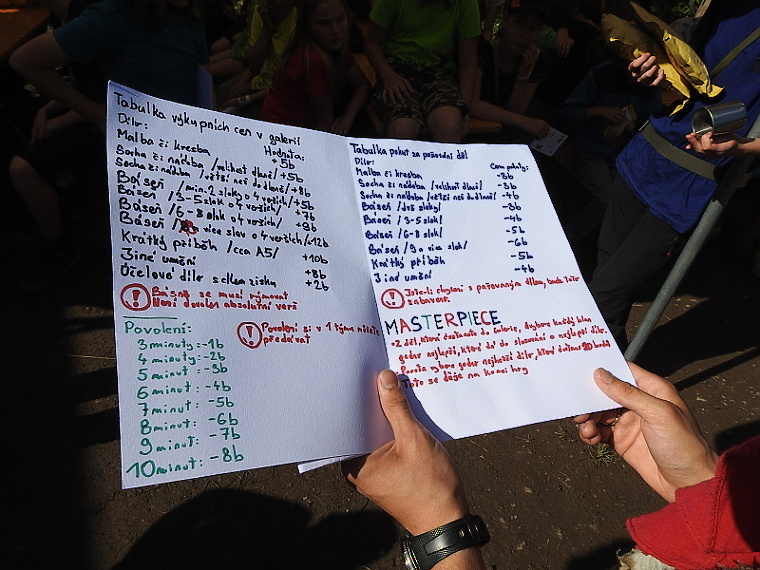 Tabulka výkupních cen v galerii
Dílo: Hodnota:
Malba či kresba +5b
Socha či nádoba /velikost dlaně/ +5b
Socha či nádoba /větší než do dlaně/ +8b
Báseň /min. 2 sloky o 4 verších/ +5b
Báseň /3-5 slok o 4 verších/ +7b
Báseň /6-8 slok o 4 verších/ +9b
Báseň / více slov o 4 verších/ +12b
Krátký příběh /cca A5/ +10b
Jiné umění +8b
Účelové dílo s cílem zisku +2b
Básně se musí rýmovat
Není dovolen absolutní verš
Povolení:
3 minuty: -1b
4 minuty: -2b
5 minut: -3b
6 minut: -4b
7 minut: -5b
8 minut: -6b
9 minut: -7b
10 minut: -8b
Povolení si v 1 týmu můžete
předávat
Tabulka pokut za pašování děl
Dílo: Cena pokuty:
Malba či kresba -3b
Socha či nádoba /velikosti dlaně/ -3b
Socha či nádoba /větší než do dlaně/ -4b
Báseň /dvě sloky/ -3b
Báseň /3-5 slok/ -4b
Báseň /6-8 slok/ -5b
Báseň /9 a více slok/ -6b
Krátký příběh -5b
Jiné umění -4b
Jste-li chyceni s pašovaným dílem, bude Vám
zabaveno.
MASTERPIECE
Z děl, které dostanete do Galerie, vybere každý klan
jedno nejlepší, které dá do slosování o nejlepší dílo.
Porota vybere jedno nejhezčí dílo, které dostane 20 bodů
Toto se děje na konci hry